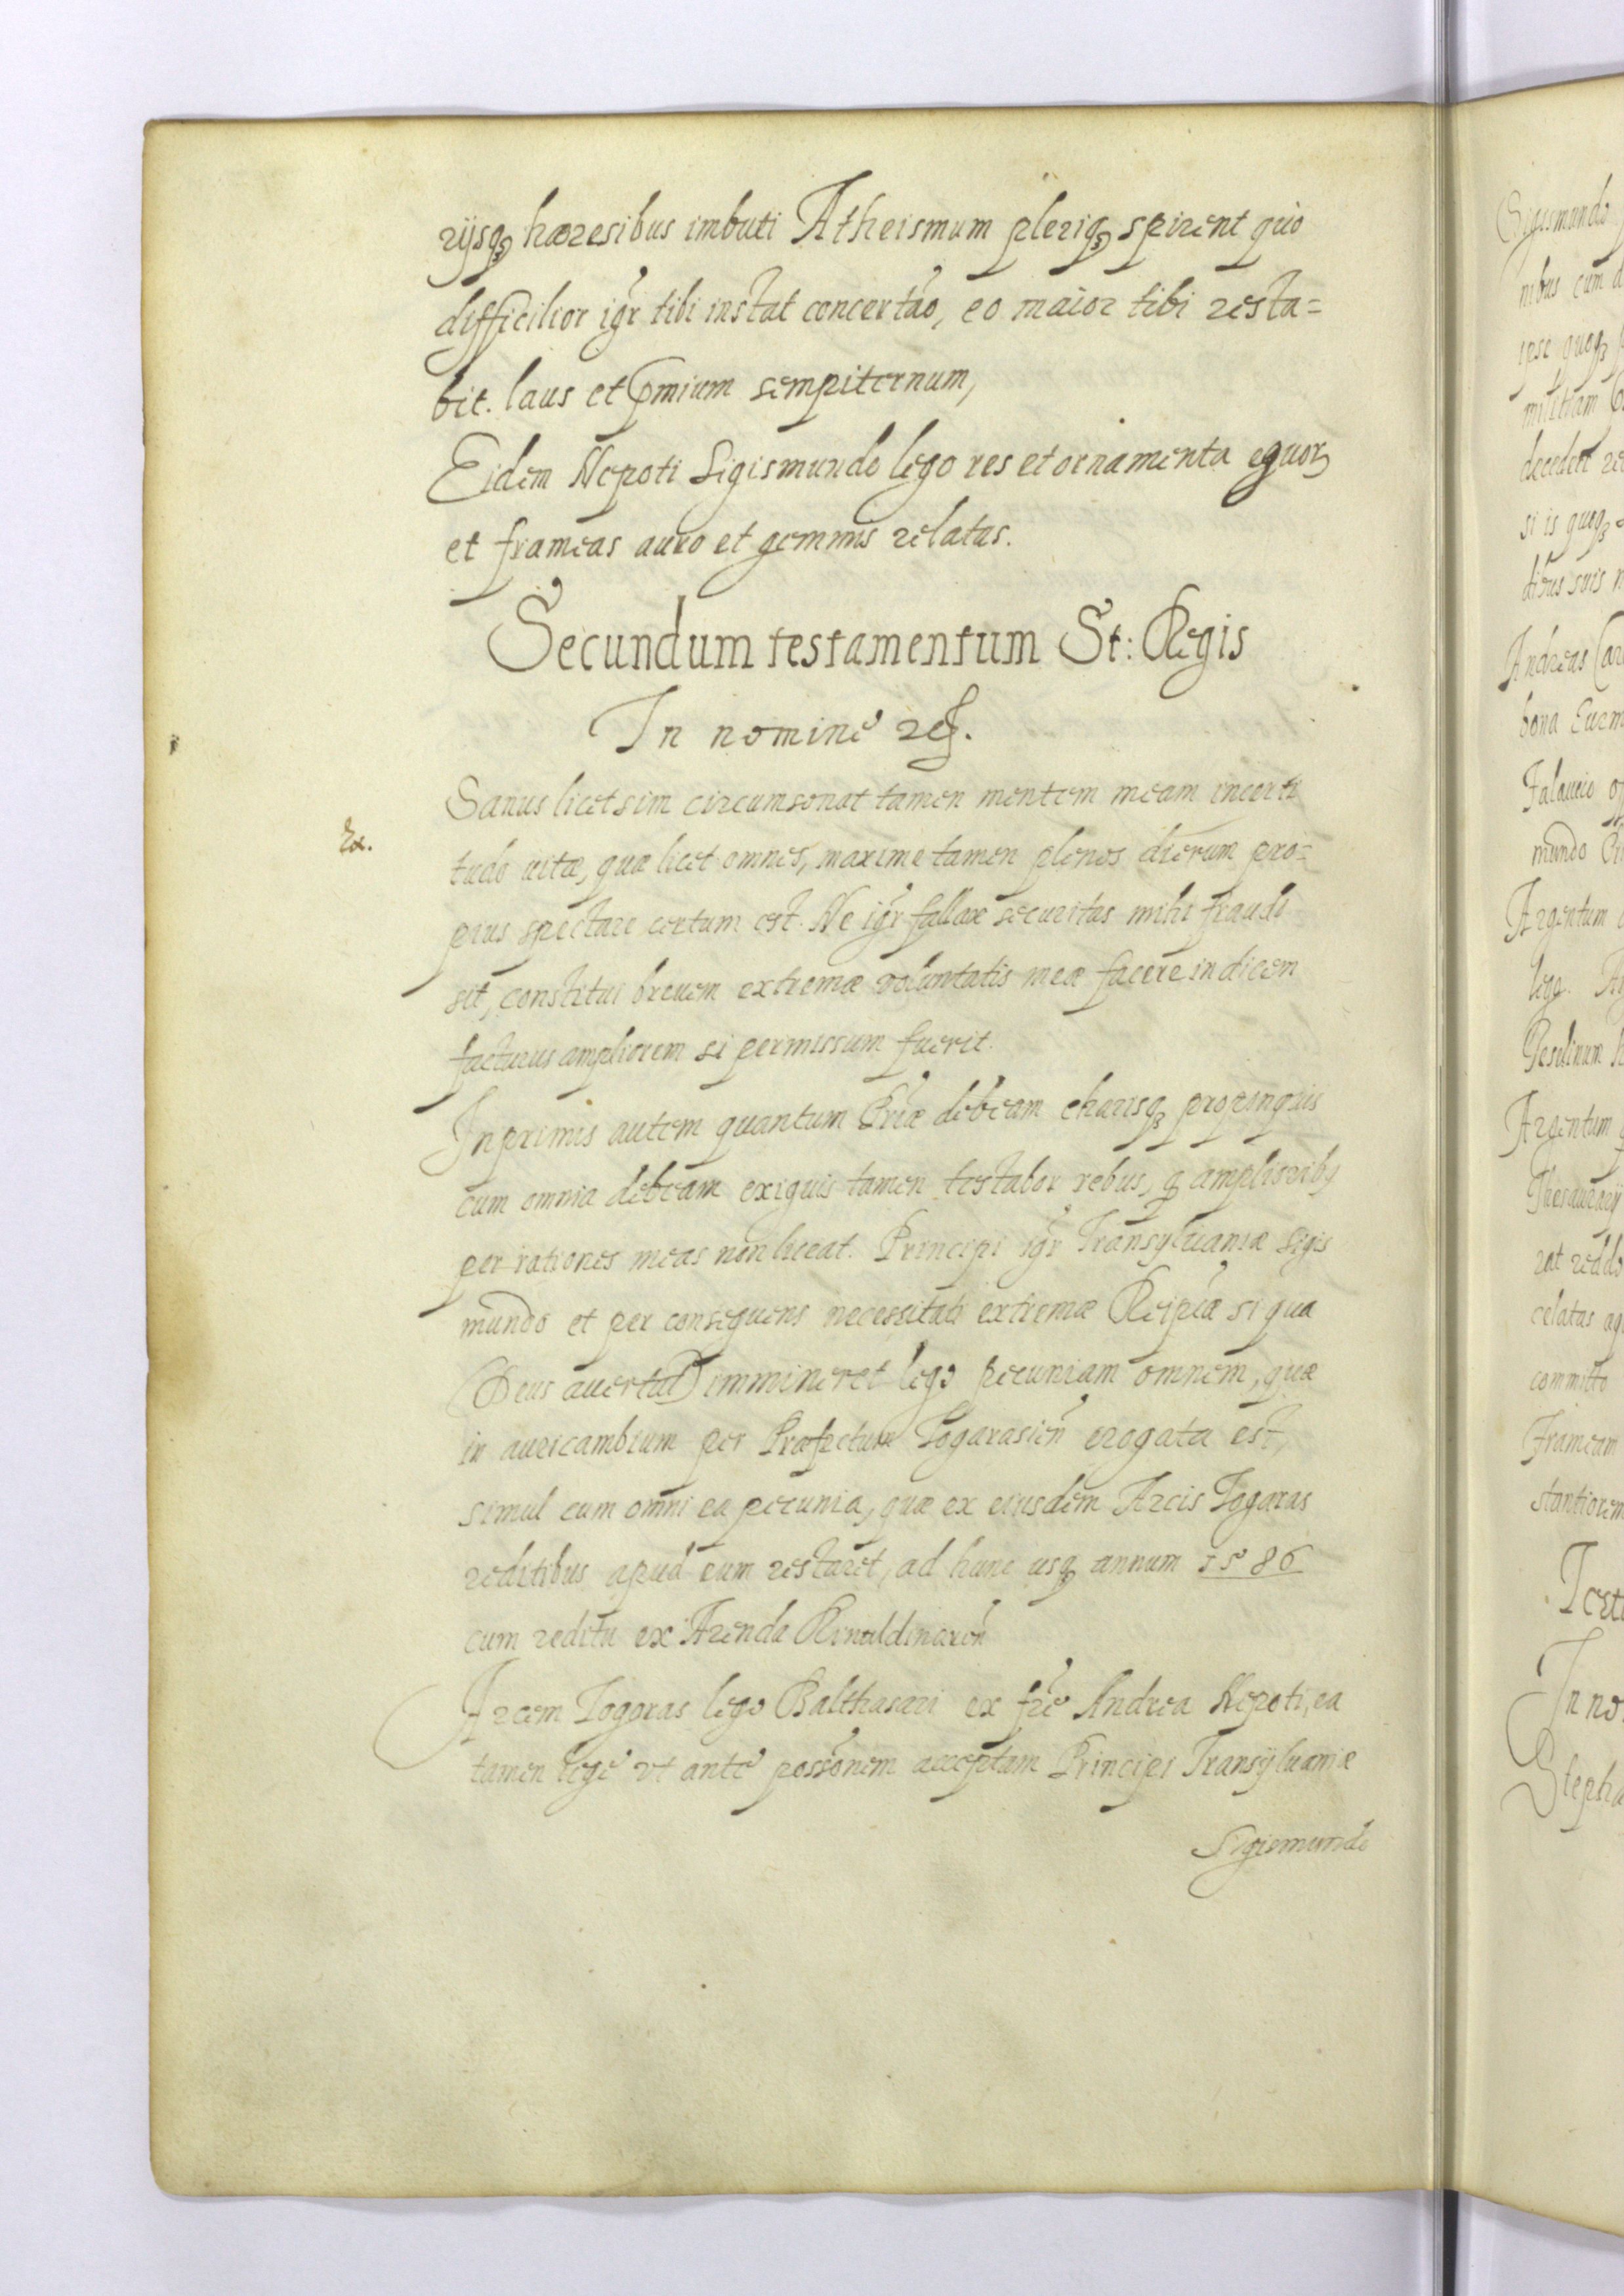 rijsq₃ hæresibus imbuti Atheismum pleriq₃ spirent quo
difficilior igr̃ tibi instat concertão, eo maior tibi resta=
bit. laus et p̃mium sempiternum,
Eidem Nepoti Sigismundo lego res et ornamenta equor₃
et frameas auro et gemmis relatas.
Secundum testamentum St: Regis
In nomine etc.
Sanus licet sim circumsonat tamen mentem meam incerti
Ex.
tudo uitæ, quæ licet omnes, maxime tamen plenos dierum pro=
pius spectare certum est. Ne igr̃ fallax securitas mihi fraudi
sit, constitui breuem extremæ voluntatis meæ facere indicem
facturus ampliorem si permissum fuerit.
Inprimis autem quantum Priæ debeam charisq₃ propinquis
cum omnia debeam exiguis tamen testabor rebus, q amplioriby
per rationes meas non liceat. Principi igr̃ Transyluaniæ Sigis
mundo et per consequens necessitati extremæ Reipicæ si qua
(Deus auertat) immineret lego pecuniam omnem, quæ
in auricambium per Præfectum Fogarasień erogata est,
simul cum omni ea pecunia, quæ ex eiusdem Arcis Fogaras
reditibus apud eum restaret, ad hunc usq₃ annum 1586
cum reditu ex Arenda Rinaldinaroń
Arcem Fogaras lego Balthasari ex fr̃e Andrea Nepoti, ea
tamen lege vt ante possõnem acceptam Principi Transyluaniæ
Sigismundo
Sigismundo
nibus cum
ipse quoq₃
militiam
decederet
si is quoq₃
suis
Andreas Car
bona
mundo
Argentum
lego.
Argentum
celatas
committo
Frameam
In no
Stepha